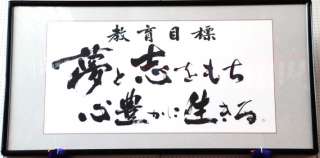 教育目標
夢と志をもち
心豊かに生きる